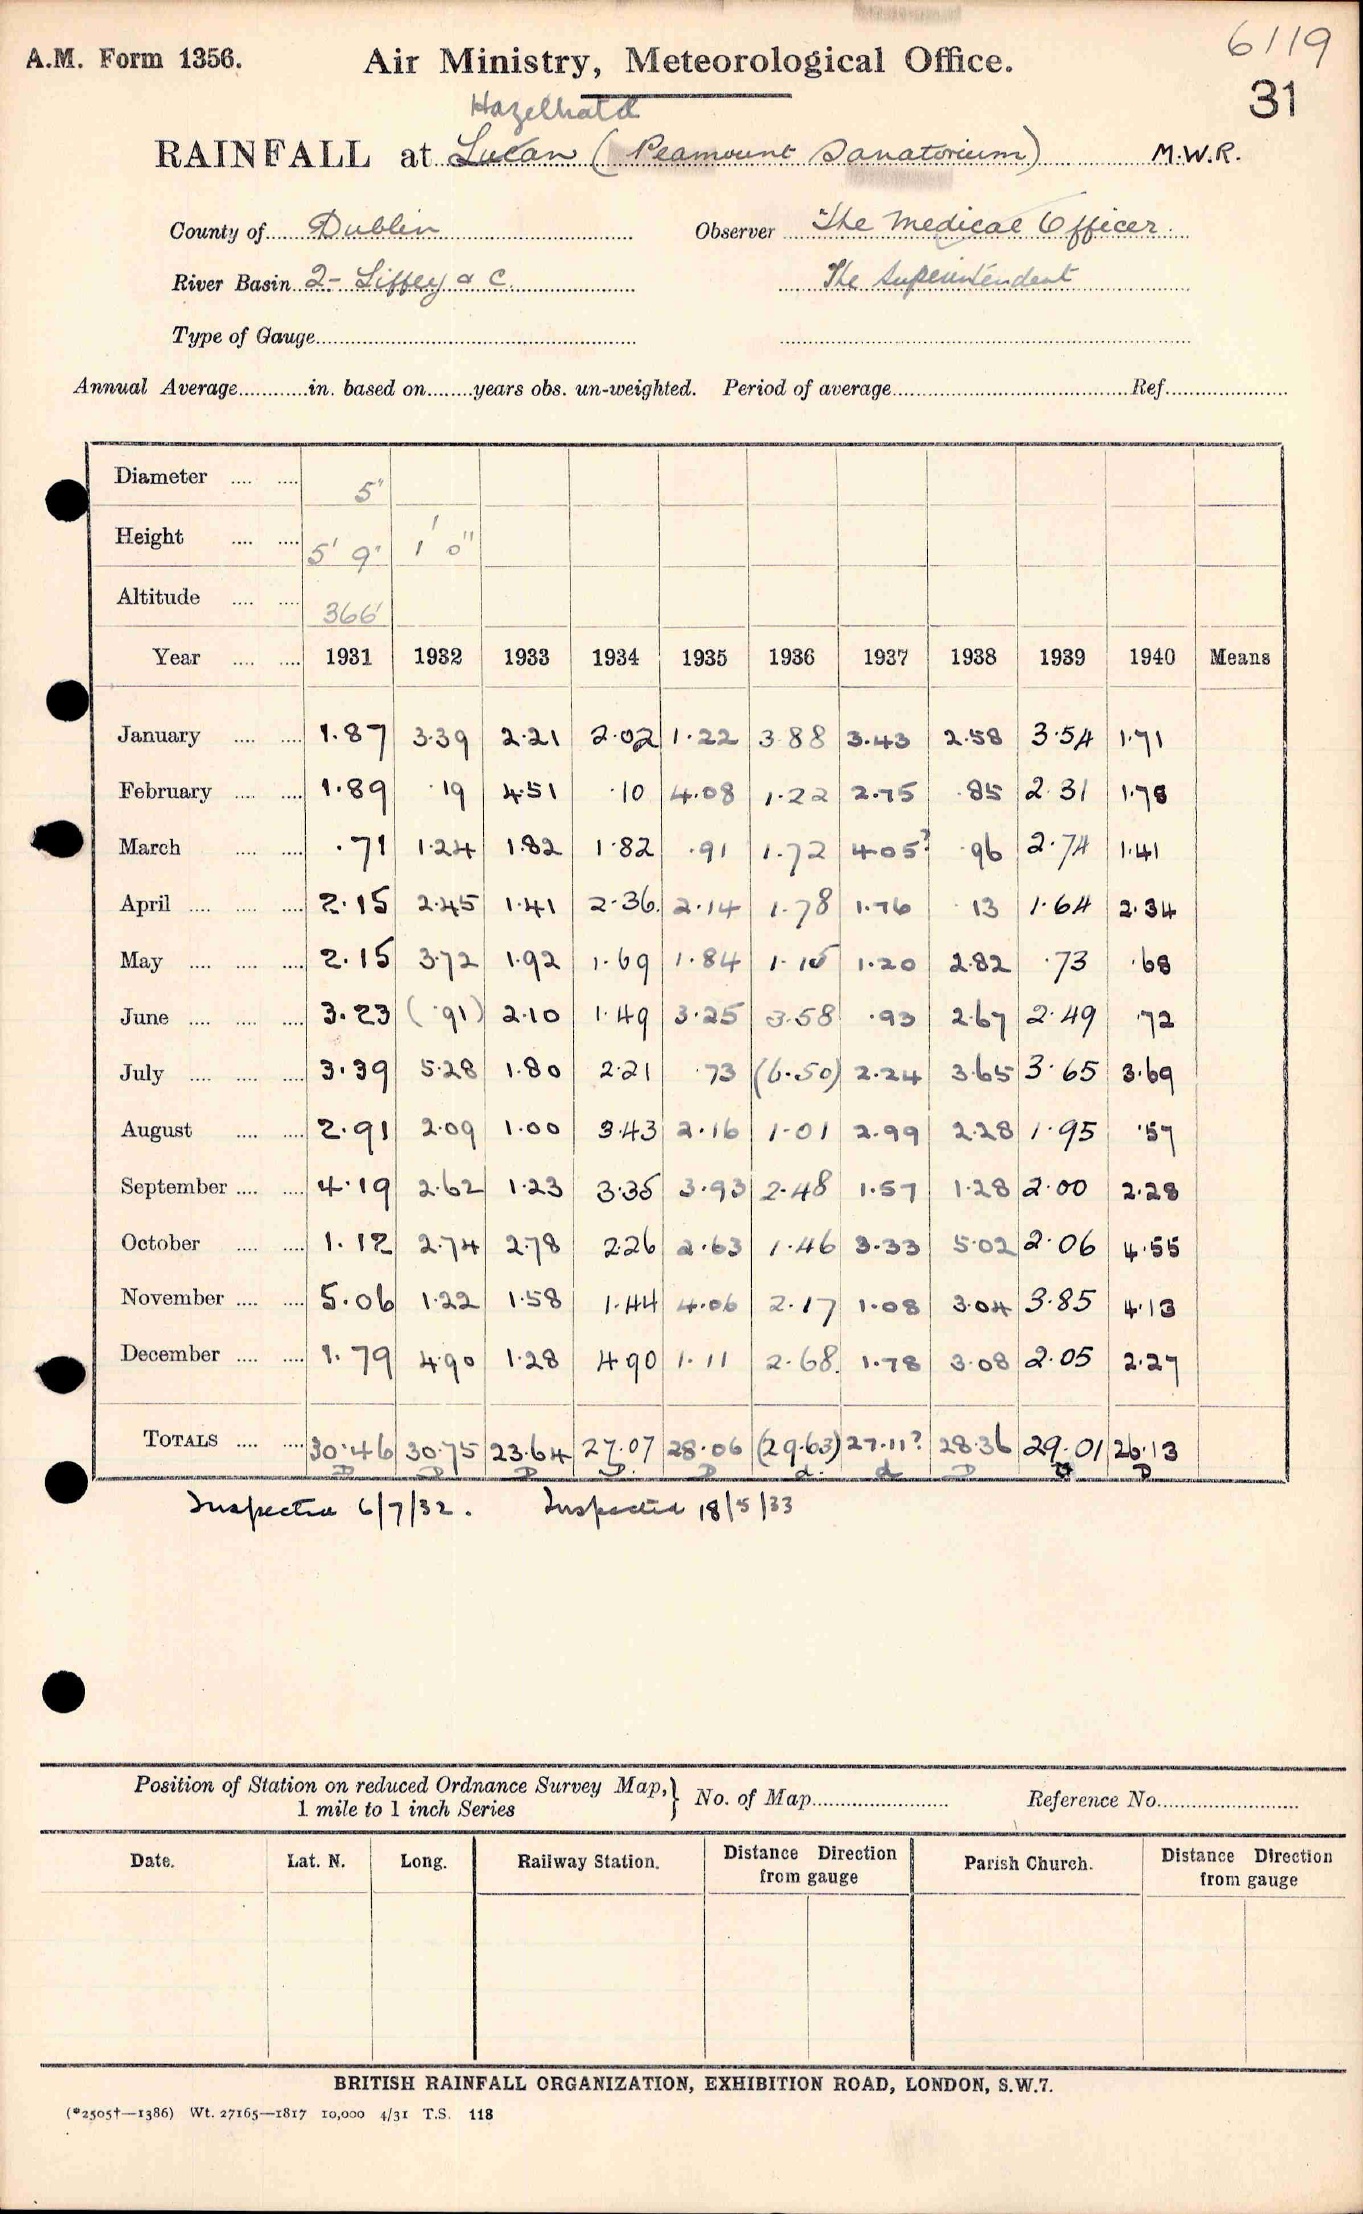 6119
A.M. Form 1356.
Air Ministry, Meteorological Office.
31
Hazelhatch
RAINFALL at Lucan (Peamount Sanatorium) M.W.R.
County of Dublin Observer The Medical Officer.
River Basin 2- Liffey & C. The Superintendent
Type of Gauge
Annual Average in. based on years obs. un-weighted. Period of average Ref.
Diameter 5"
Height 5' 9" 1' 0"
Altitude 366'
Year 1931 1932 1933 1934 1935 1936 1937 1938 1939 1940 Means
January 1.87 3.39 2.21 2.02 1.22 3.88 3.43 2.58 3.54 1.71
February 1.89 .19 4.51 .10 4.08 1.22 2.75 .85 2.31 1.78
March .71 1.24 1.82 1.82 .91 1.72 4.05? .96 2.74 1.41
April 2.15 2.45 1.41 2.36 2.14 1.78 1.76 .13 1.64 2.34
May 2.15 3.72 1.92 1.69 1.84 1.15 1.20 2.82 .73 .68
June 3.23 (.91) 2.10 1.49 3.25 3.58 .93 2.67 2.49 .72
July 3.39 5.28 1.80 2.21 .73 (6.50) 2.24 3.65 3.65 3.69
August 2.91 2.09 1.00 3.43 2.16 1.01 2.99 2.28 1.95 .57
September 4.19 2.62 1.23 3.35 3.93 2.48 1.57 1.28 2.00 2.28
October 1.12 2.74 2.78 2.26 2.63 1.46 3.33 5.02 2.06 4.55
November 5.06 1.22 1.58 1.44 4.06 2.17 1.08 3.04 3.85 4.13
December 1.79 4.90 1.28 4.90 1.11 2.68 1.78 3.08 2.05 2.27
TOTALS 30.46 30.75 23.64 27.07 28.06 (29.63) 27.11? 28.36 29.01 26.13
D D D D. D d. d D D
Inspected 6/7/32. Inspected 18/5/33
Position of Station on reduced Ordnance Survey Map,} No. of Map Reference No.
1 mile to 1 inch Series
Date. Lat. N. Long. Railway Station. Distance Direction from gauge Parish Church. Distance Direction from gauge
BRITISH RAINFALL ORGANIZATION, EXHIBITION ROAD, LONDON, S.W.7.
(*2505†—1386) Wt. 27165—1817 10,000 4/31 T.S. 118